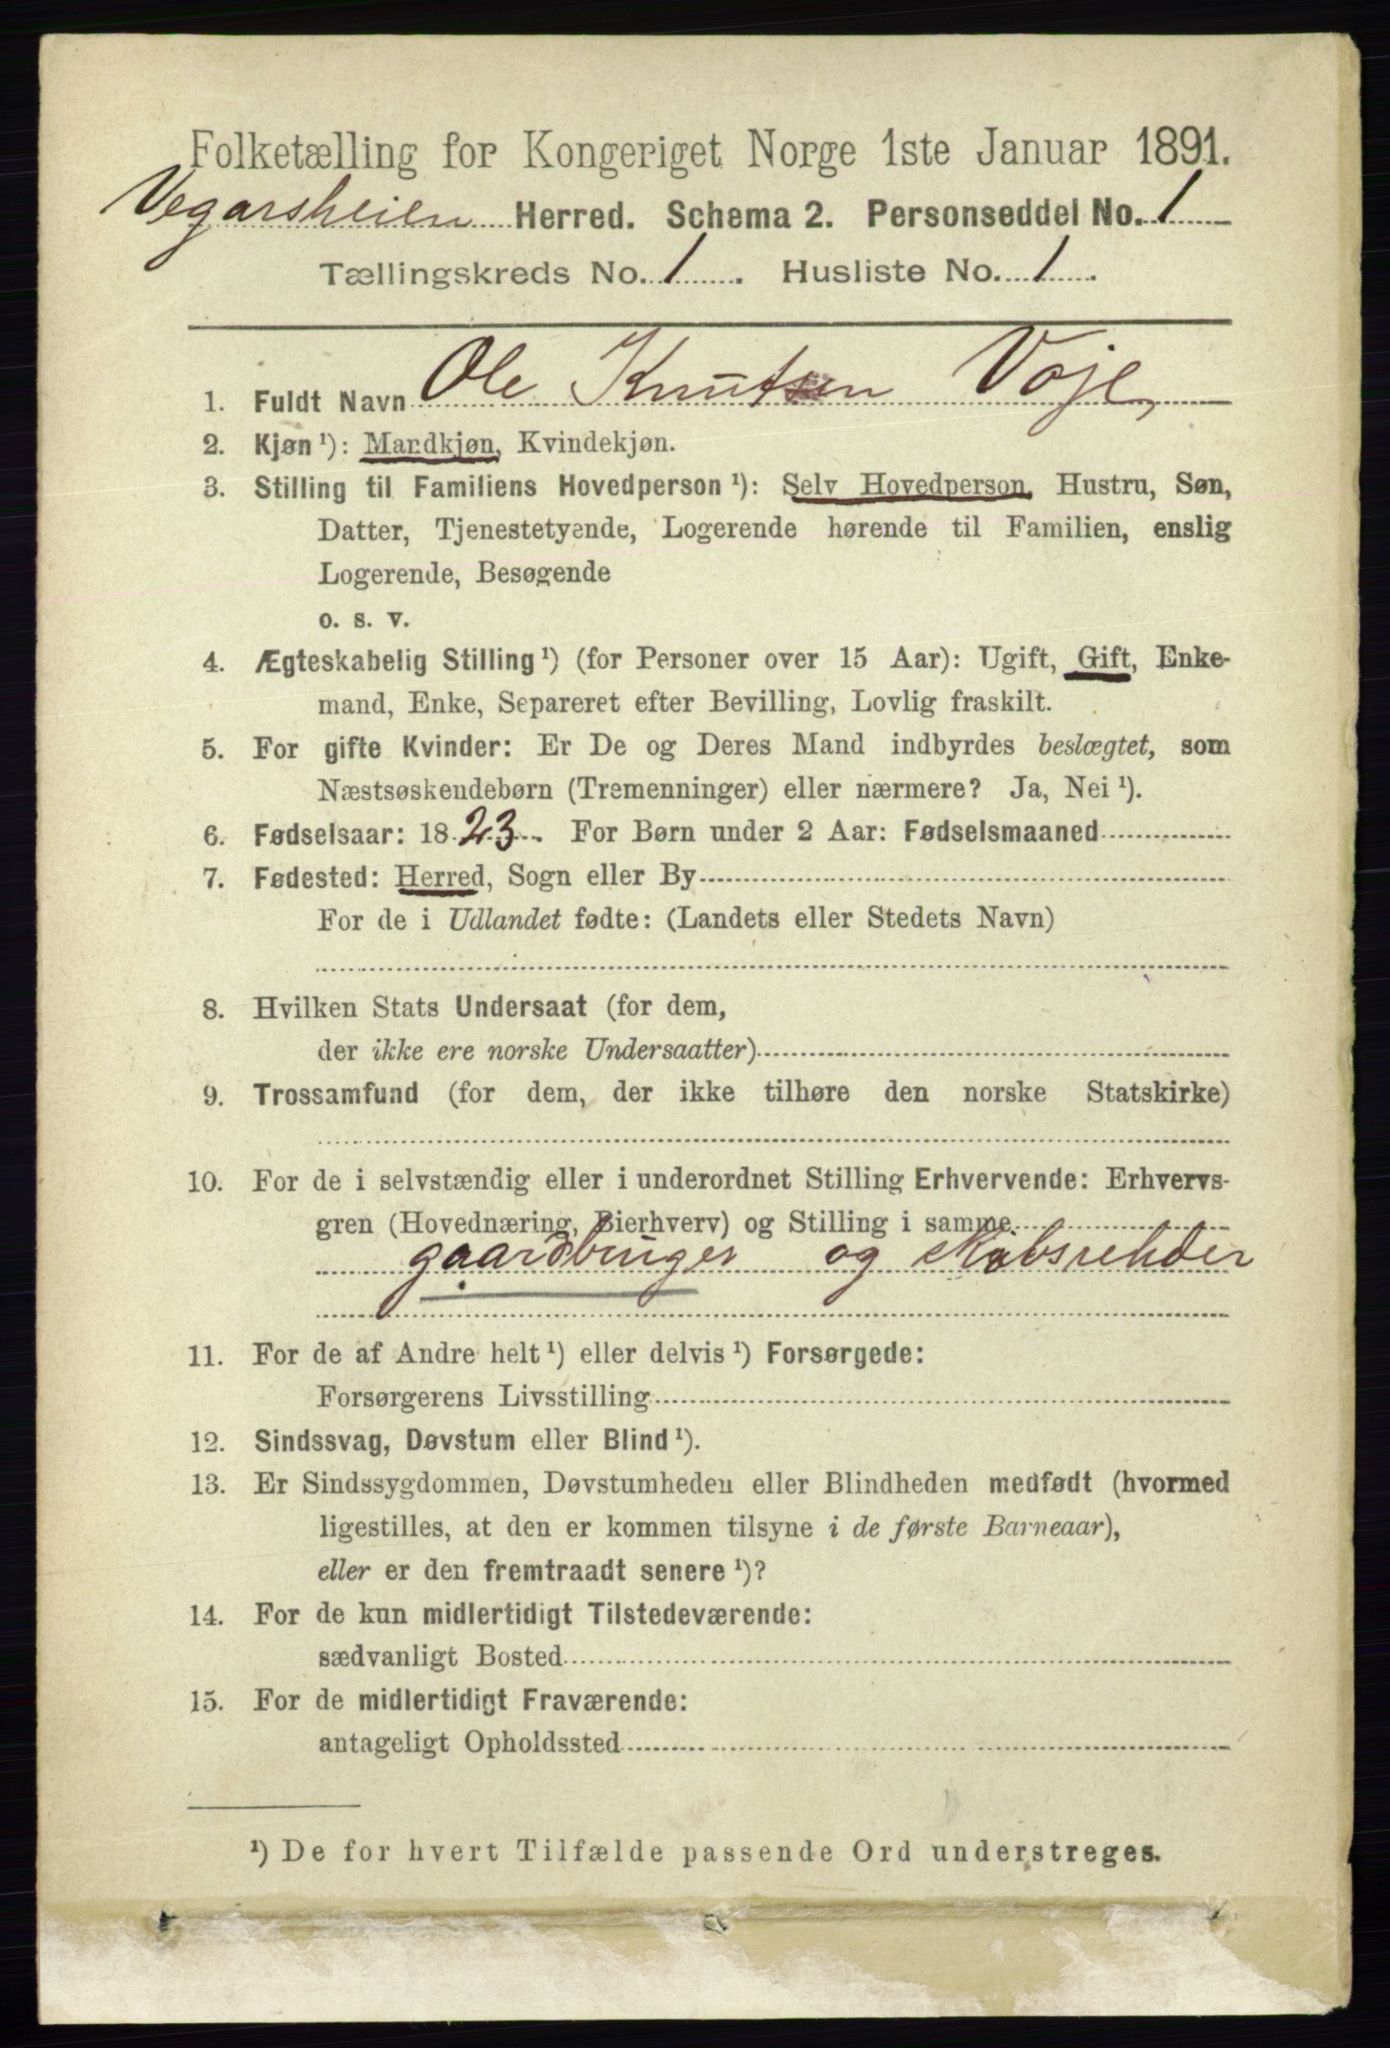 Folketælling for Kongeriget Norge 1ste Januar 1891.
Vegarsheien Herred. Schema 2. Personseddel No. 1
Tællingskreds No. 1. Husliste No. 1.
1. Fuldt Navn Ole Knutsen Voje,
2. Kjøn ¹): Mandkjøn, Kvindekjøn.
3. Stilling til Familiens Hovedperson ¹): Selv Hovedperson, Hustru, Søn,
Datter, Tjenestetyende, Logerende hørende til Familien, enslig
Logerende, Besøgende
o. s. v.
4. Ægteskabelig Stilling ¹) (for Personer over 15 Aar): Ugift, Gift, Enke-
mand, Enke, Separeret efter Bevilling, Lovlig fraskilt.
5. For gifte Kvinder: Er De og Deres Mand indbyrdes beslægtet, som
Næstsøskendebørn (Tremenninger) eller nærmere? Ja, Nei ¹).
6. Fødselsaar: 1823. For Børn under 2 Aar: Fødselsmaaned
7. Fødested: Herred, Sogn eller By
For de i Udlandet fødte: (Landets eller Stedets Navn)
8. Hvilken Stats Undersaat (for dem,
der ikke ere norske Undersaatter)
9. Trossamfund (for dem, der ikke tilhøre den norske Statskirke)
10. For de i selvstændig eller i underordnet Stilling Erhvervende: Erhvervs-
gren (Hovednæring, Bierhverv) og Stilling i samme
gaardbruger og skibsrehder
11. For de af Andre helt ¹) eller delvis ¹) Forsørgede:
Forsørgerens Livsstilling
12. Sindssvag, Døvstum eller Blind ¹).
13. Er Sindssygdommen, Døvstumheden eller Blindheden medfødt (hvormed
ligestilles, at den er kommen tilsyne i de første Barneaar),
eller er den fremtraadt senere ¹)?
14. For de kun midlertidigt Tilstedeværende:
sædvanligt Bosted
15. For de midlertidigt Fraværende:
antageligt Opholdssted
¹) De for hvert Tilfælde passende Ord understreges.